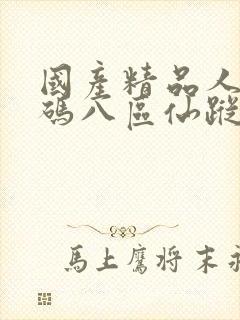 國產精品人
碼八區仙蹤
馬上鷹将末